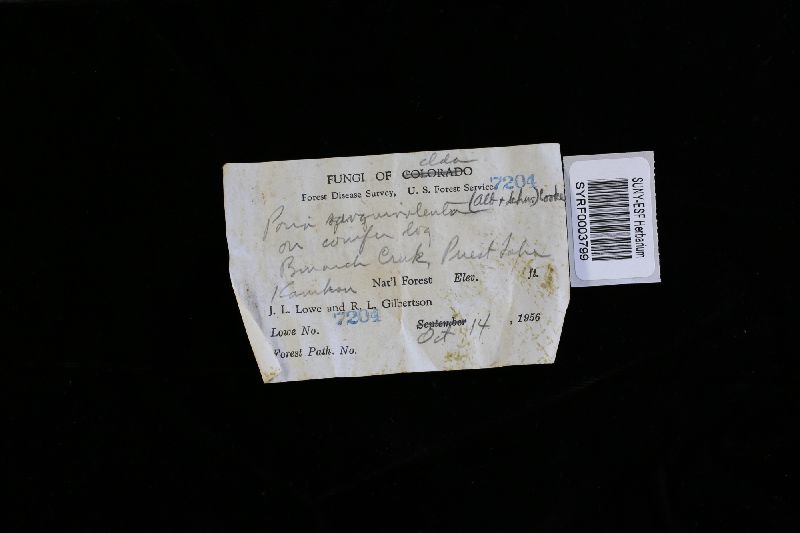 Idaho
FUNGI OF COLORADO
Forest Disease Survey, U. S. Forest Service 7204
Poria sanguinolenta (Alb + Schw) Cooke
on conifer log
Creek, Priest Lake
Kaniksu Nat'l Forest Elev. ft.
J. L. Lowe and R. L. Gilbertson
Lowe No. 7204 September Oct 14, 1956
Forest Path. No.
SUNY-ESF Herbarium
SYRF0003799